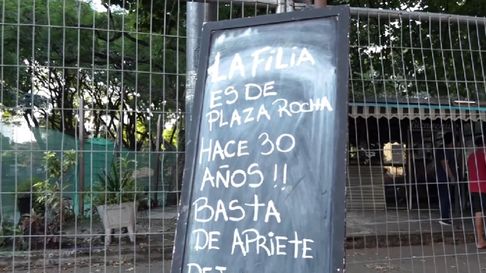 LA FILIA
ES DE
PLAZA ROCHA
HACE 30
AÑOS !!
BASTA
DE APRIETE